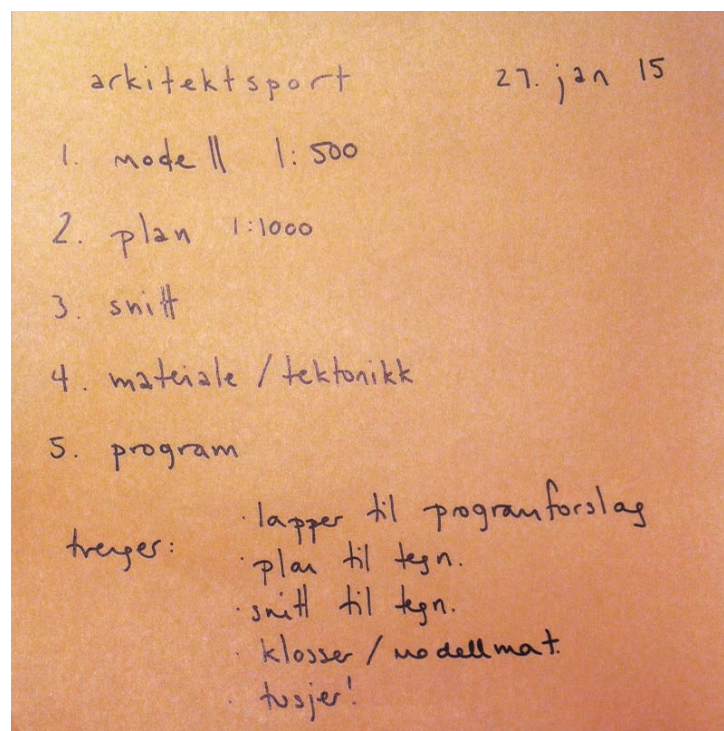 arkitektsport 27. jan 15
1. modell 1:500
2. plan 1:1000
3. snitt
4. materiale / tektonikk
5. program
trenger: · lapper til programforslag
· plan til tegn.
· snitt til tegn.
· klosser / modellmat.
· tusjer!